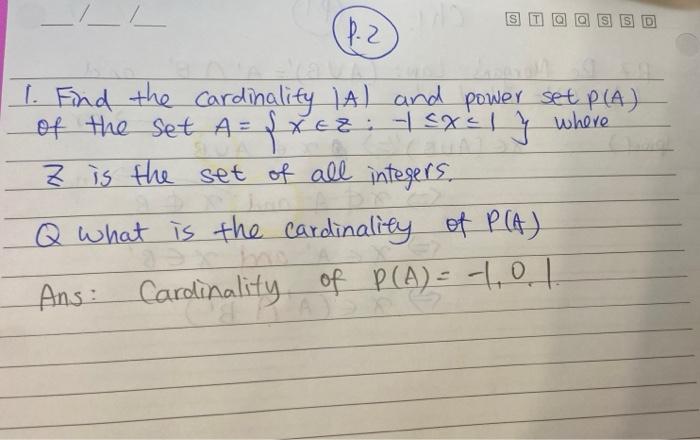 __/__/__
P.2
S T Q Q S S D
1. Find the cardinality |A| and power set P(A)
of the set A = { x ∈ z : -1 ≤ x ≤ 1 } where
Z is the set of all integers.
Q What is the cardinality of P(A)
Ans: Cardinality of P(A) = -1, 0, 1.